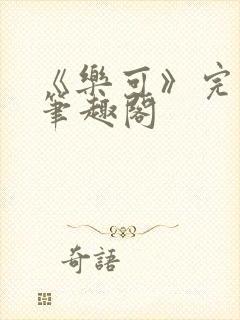 《樂可》完
筆趣閣
奇語